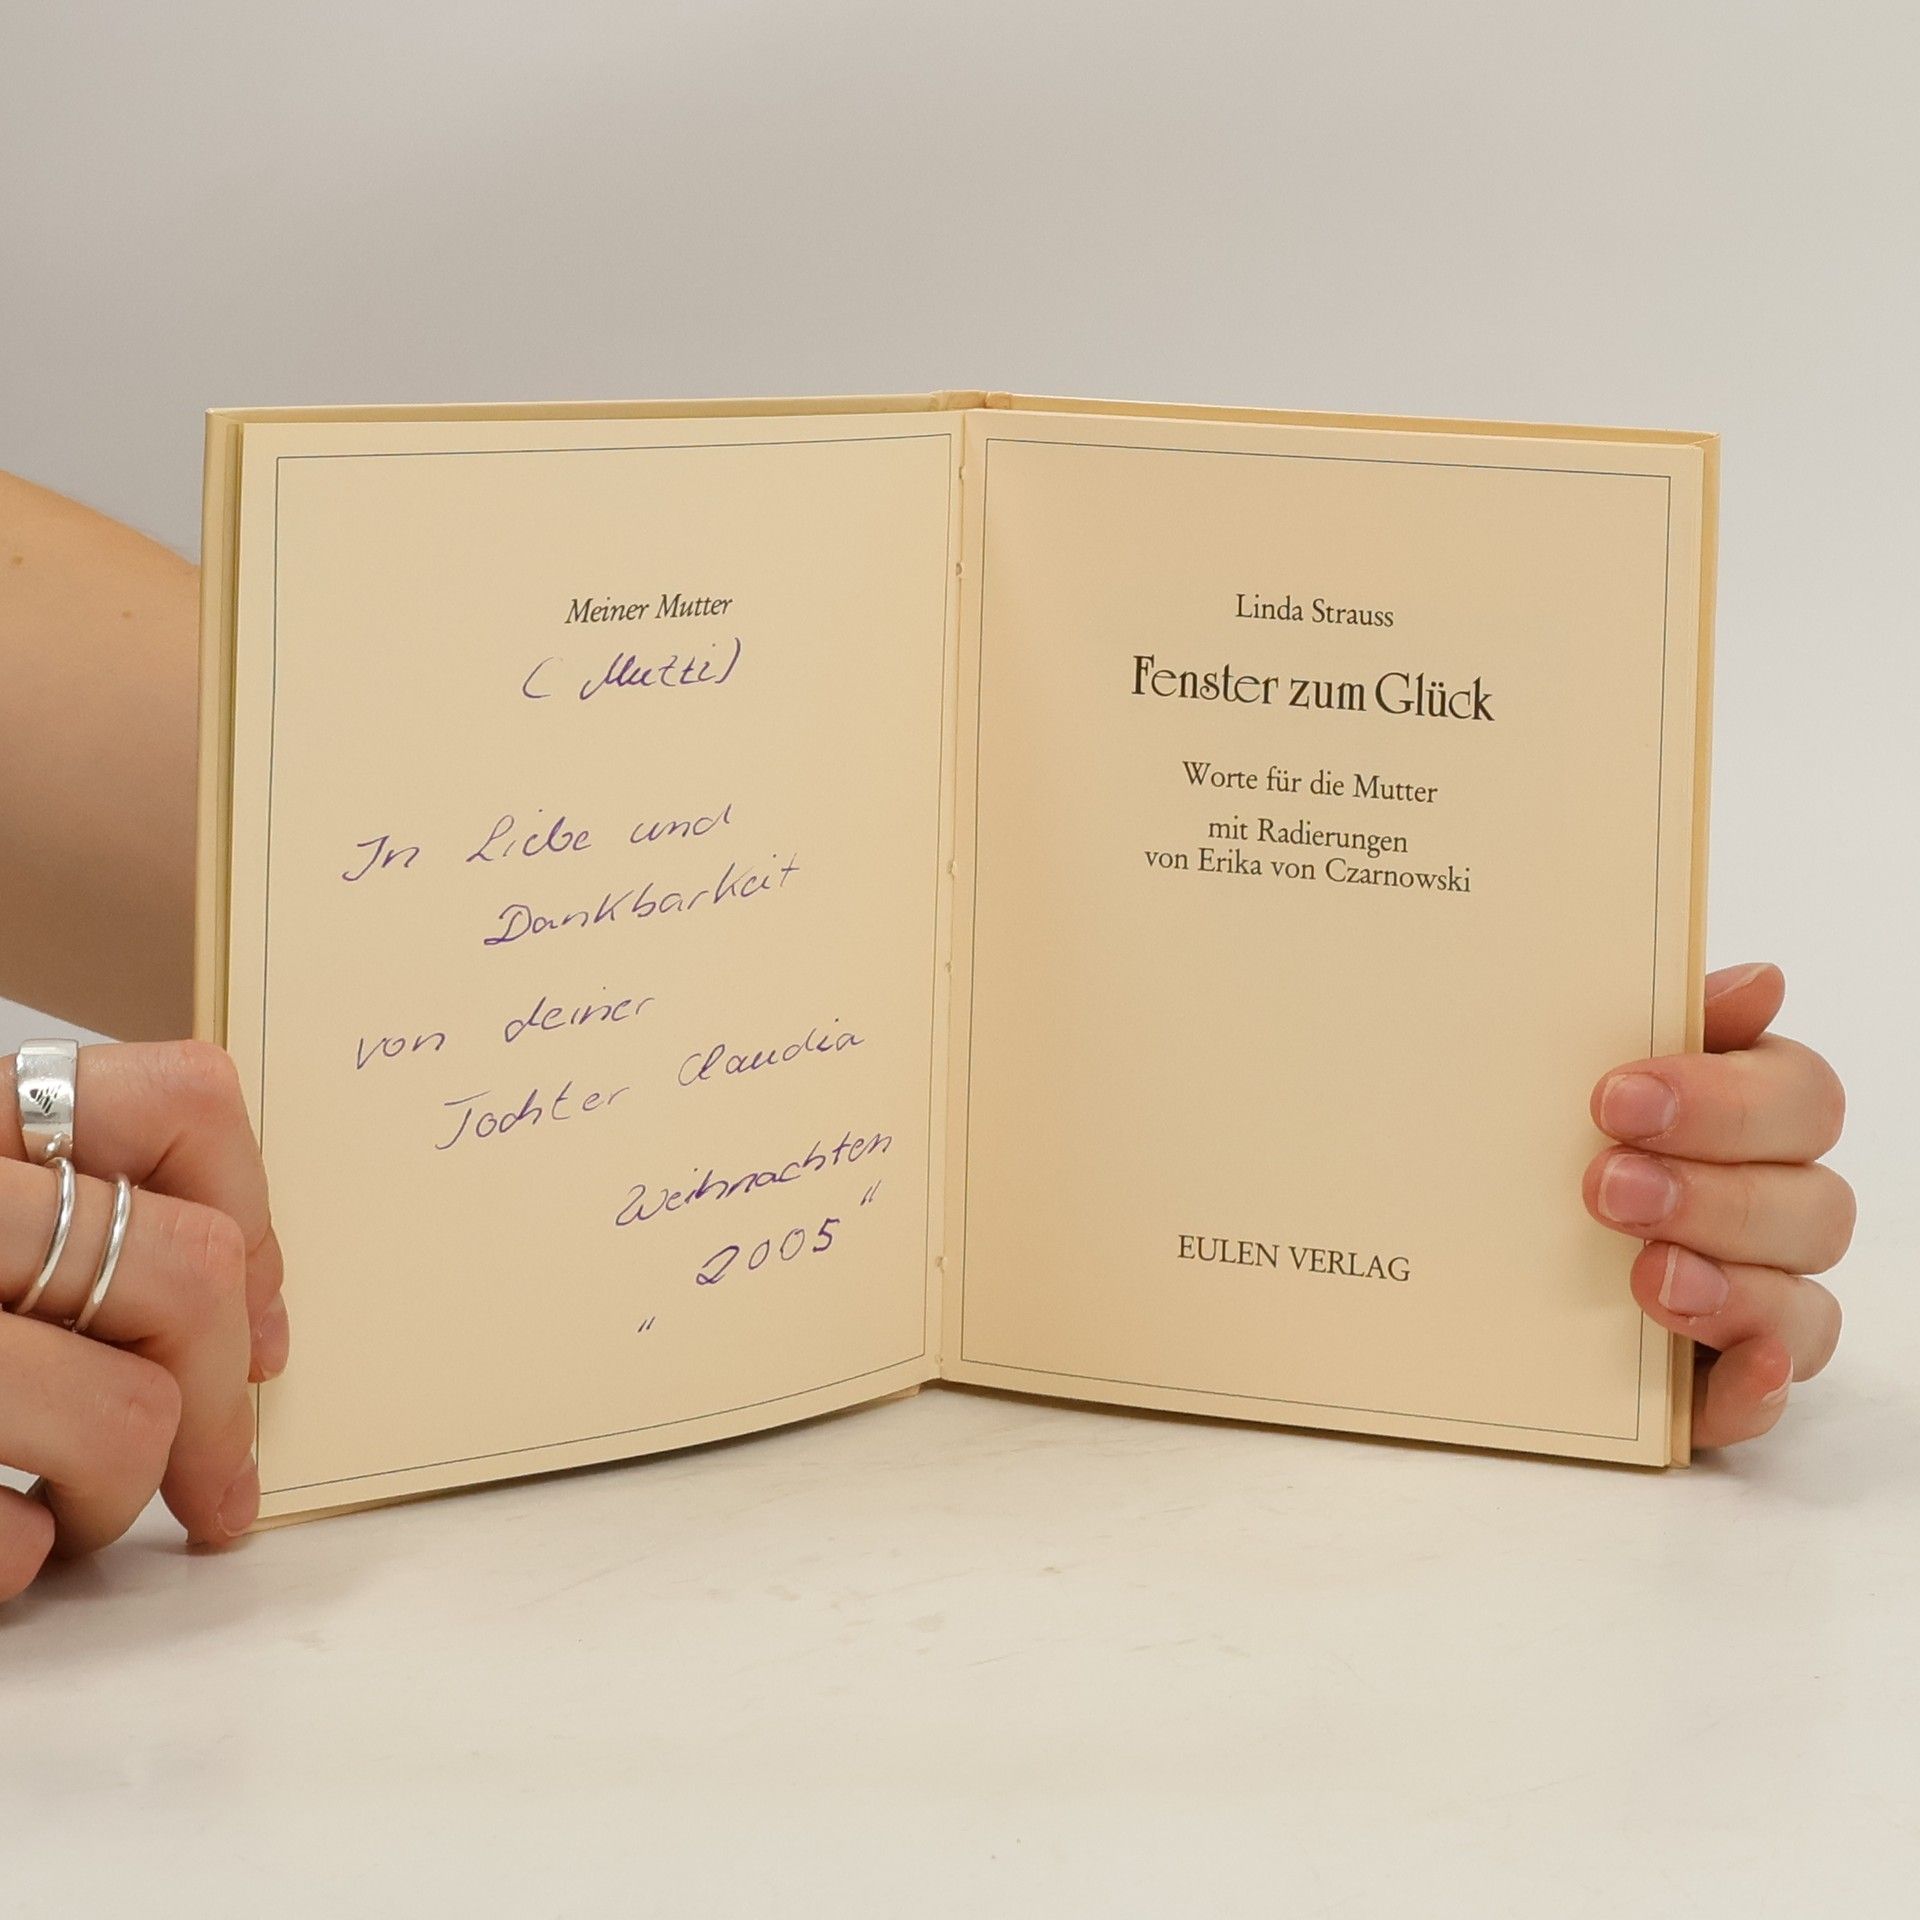 Meiner Mutter
( Mutti)
In Liebe und
Dankbarkeit
von deiner
Tochter Claudia
Weihnachten
„ 2005 “
Linda Strauss
Fenster zum Glück
Worte für die Mutter
mit Radierungen
von Erika von Czarnowski
EULEN VERLAG